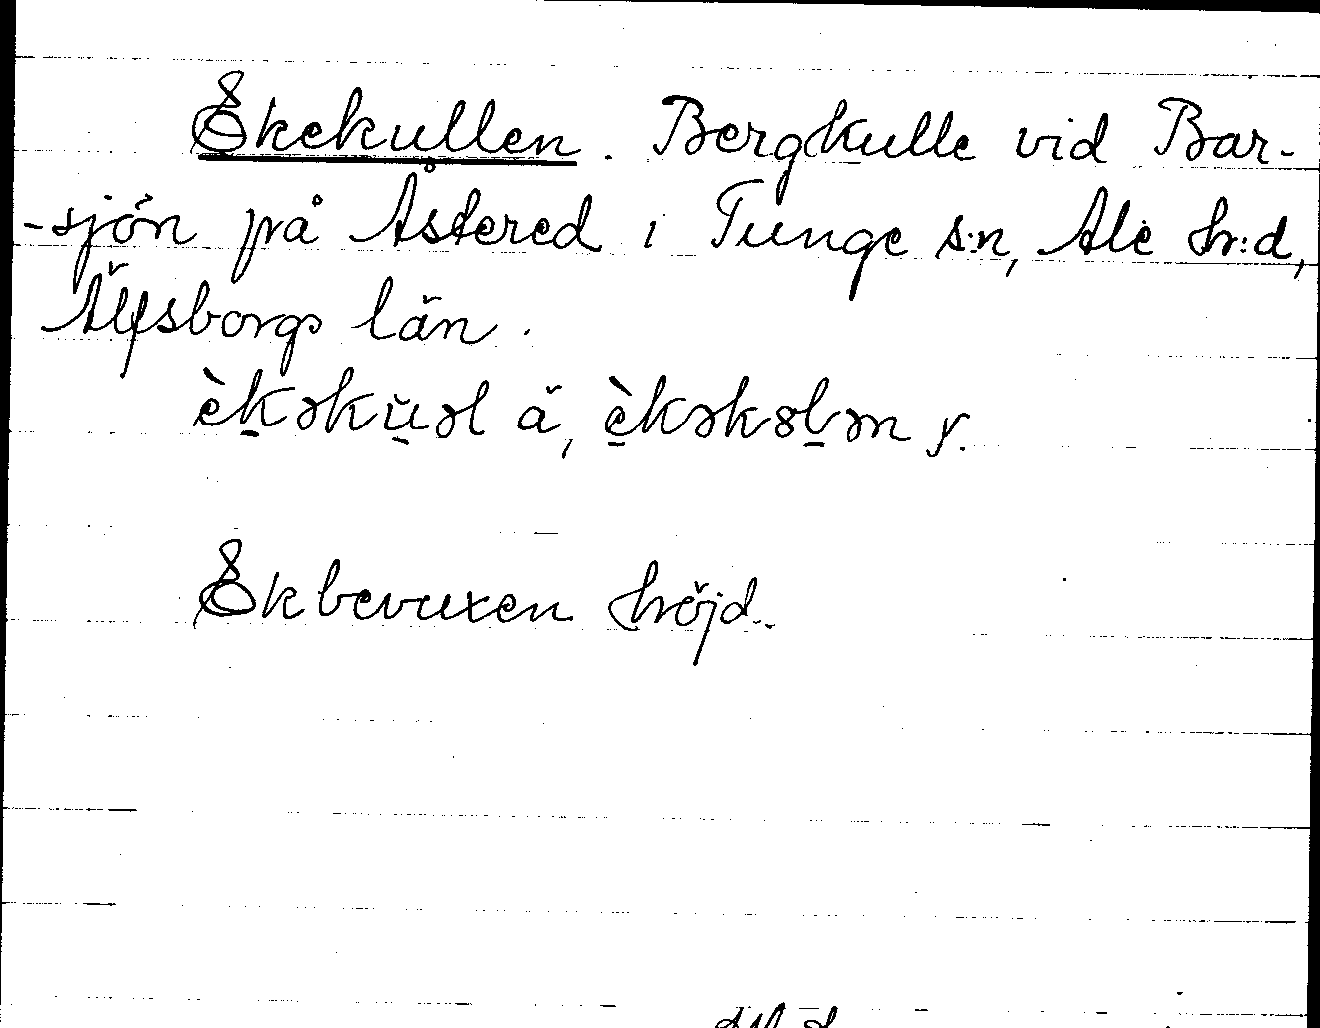 Ekekullen. Bergkulle vid Bar-
-sjön på Åstered i Tunge s:n, Ale h:d,
Älfsborgs län.
èkəkŭəl ä, èkəkɞlən y.
Ekbevuxen höjd.